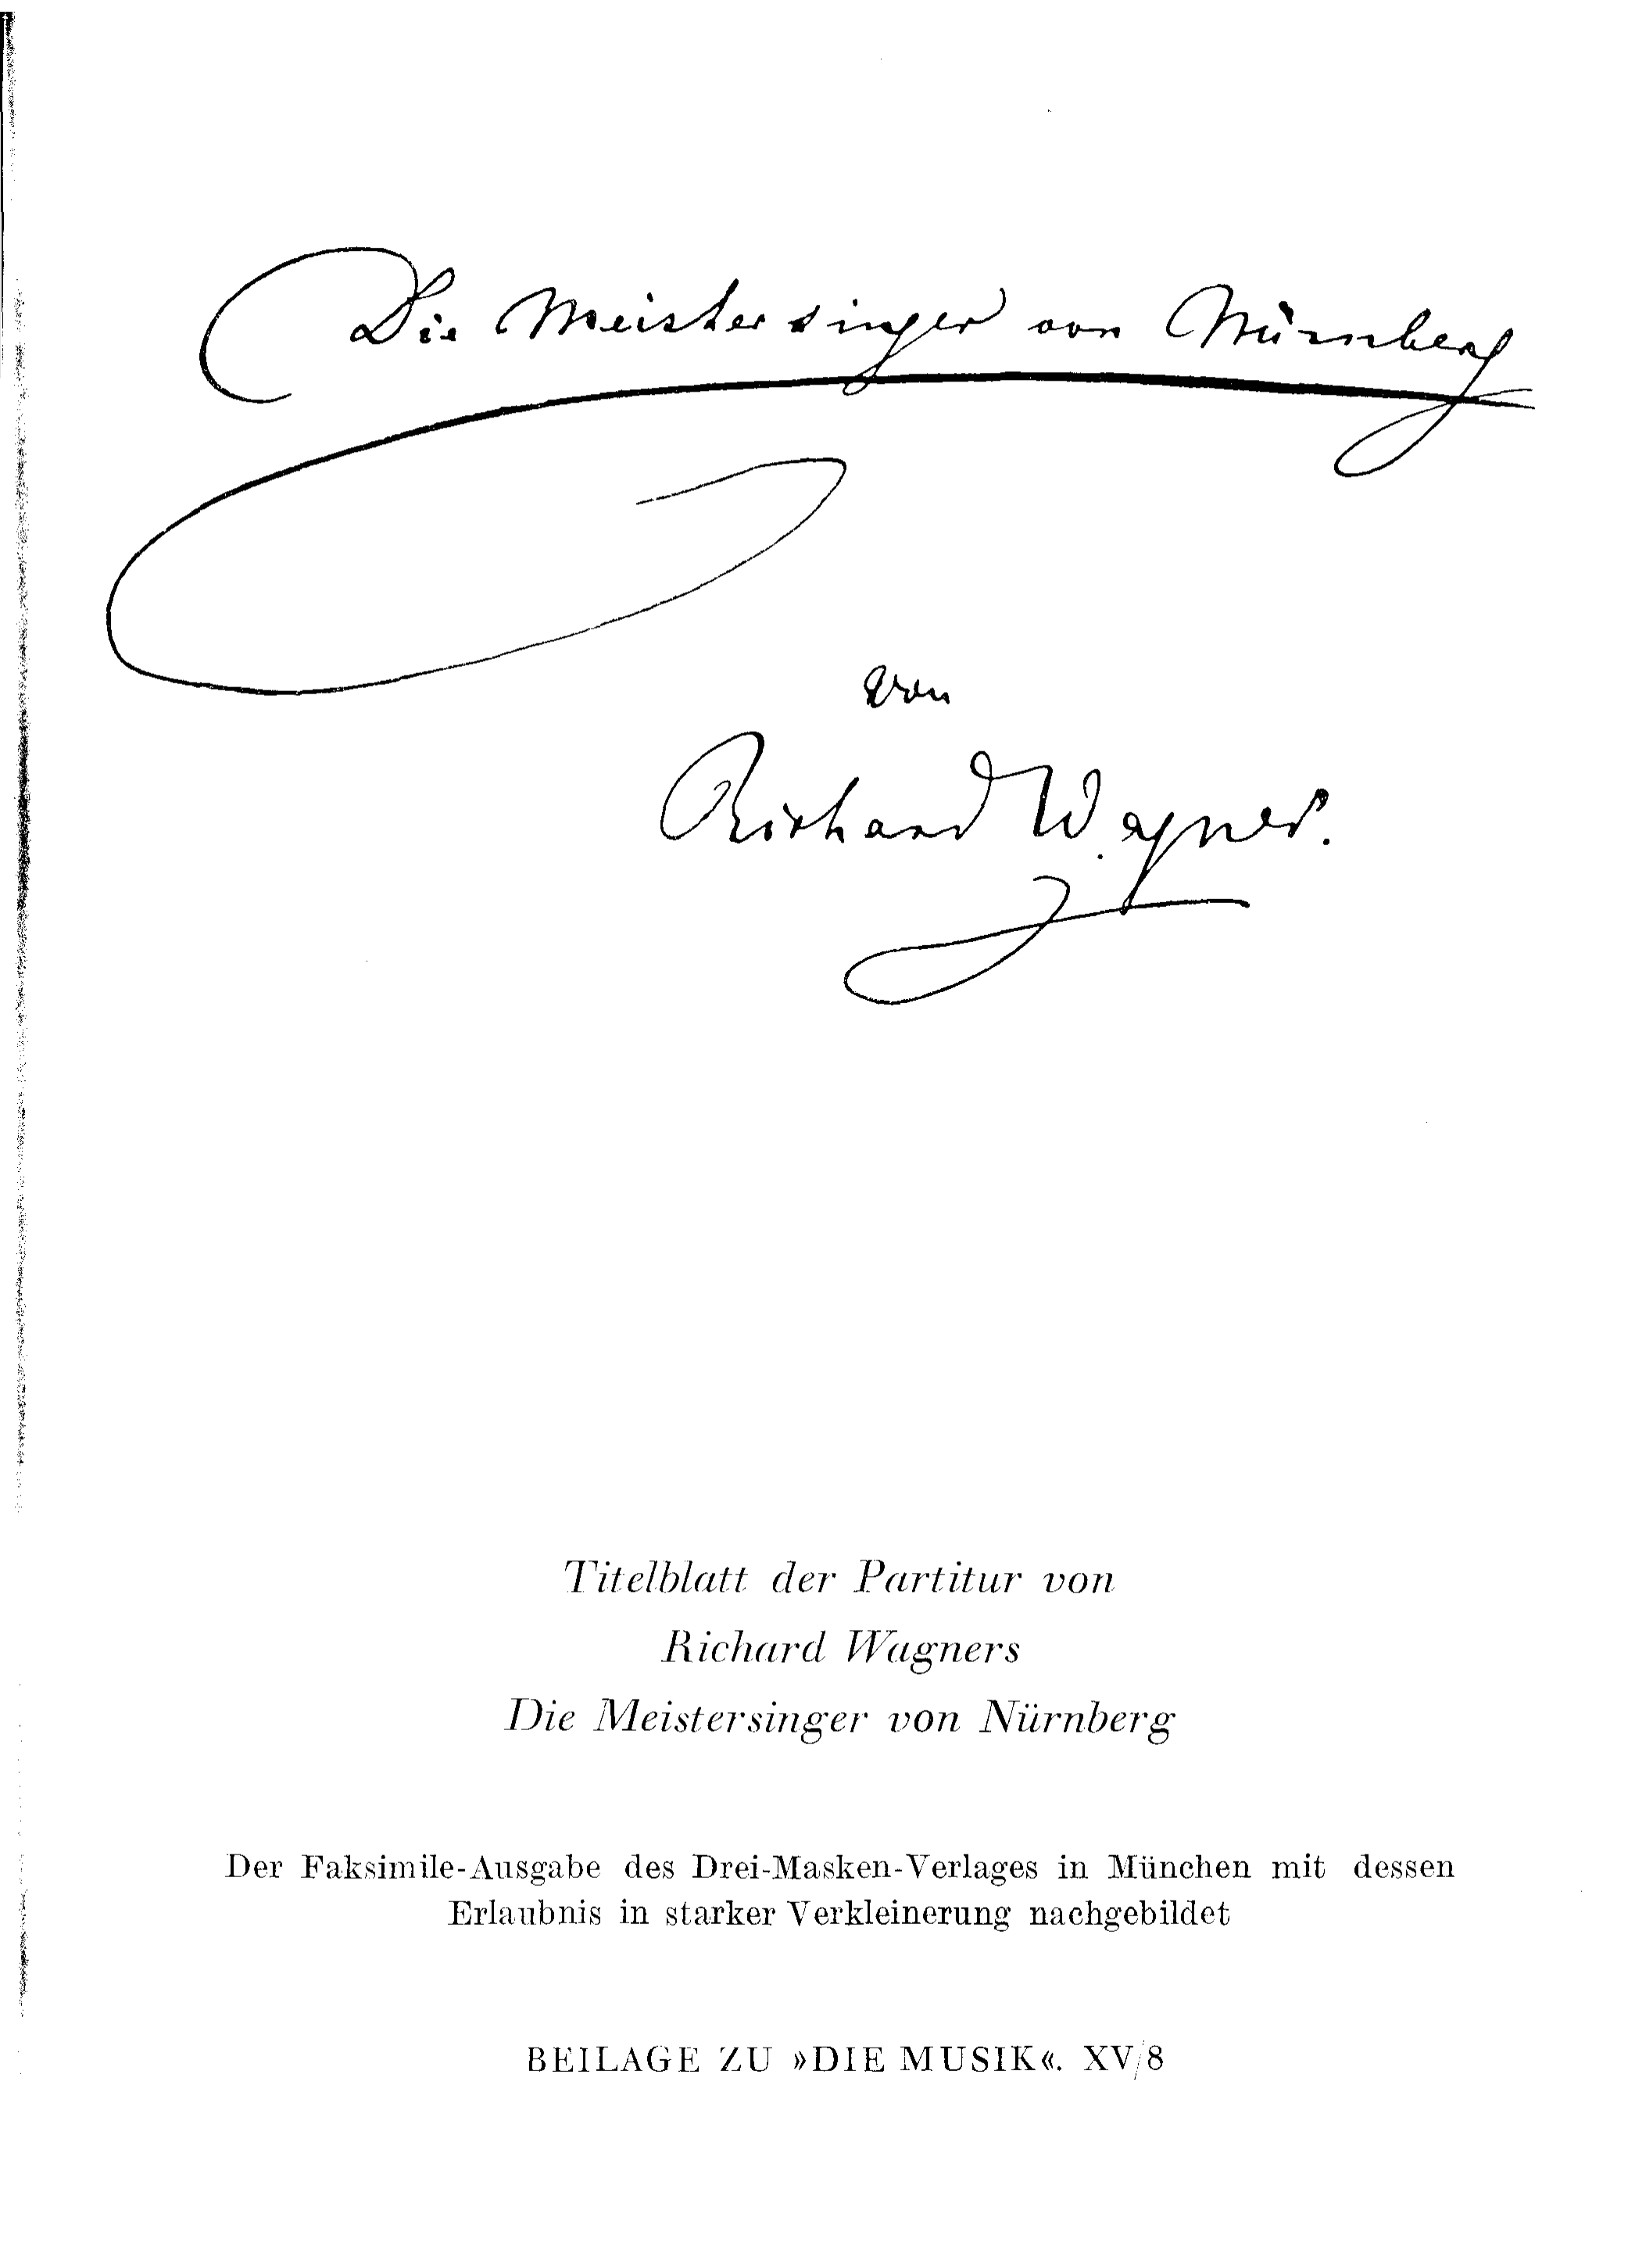 Die Meistersinger von Nürnberg
von
Richard Wagner.
Titelblatt der Partitur von
Richard Wagners
Die Meistersinger von Nürnberg
Der Faksimile-Ausgabe des Drei-Masken-Verlages in München mit dessen
Erlaubnis in starker Verkleinerung nachgebildet
BEILAGE ZU »DIE MUSIK«. XV/8